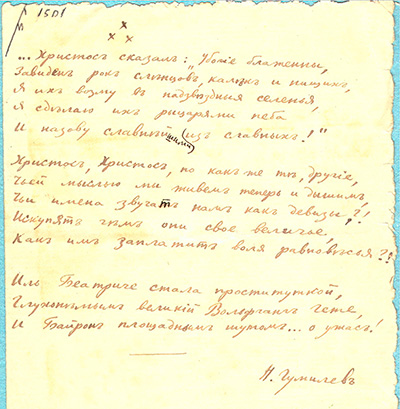 1501
x x x
... Христосъ сказалъ: „Убогіе блаженны,
Завиденъ рокъ слѣпцовъ, калѣкъ и нищихъ,
Я ихъ возьму въ надзвѣздныя селенья,
Я сдѣлаю ихъ рыцарями неба
И назову славнѣйшими изъ славныхъ!"
Христосъ, Христосъ, но какъ же тѣ, другіе,
Чьей мыслью мы живемъ теперь и дышимъ,
Чьи имена звучатъ намъ какъ девизы?!
Искупятъ чѣмъ они свое величье,
Какъ имъ заплатитъ воля равновѣсья?!
Иль Беатриче стала проституткой,
Глухонѣмымъ великій Вольфгангъ Гете,
И Байронъ площаднымъ шутомъ... о ужасъ!
Н. Гумилевъ